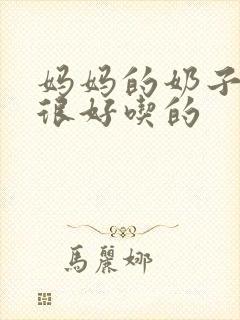 妈妈的奶子
很好喫的
馬麗娜